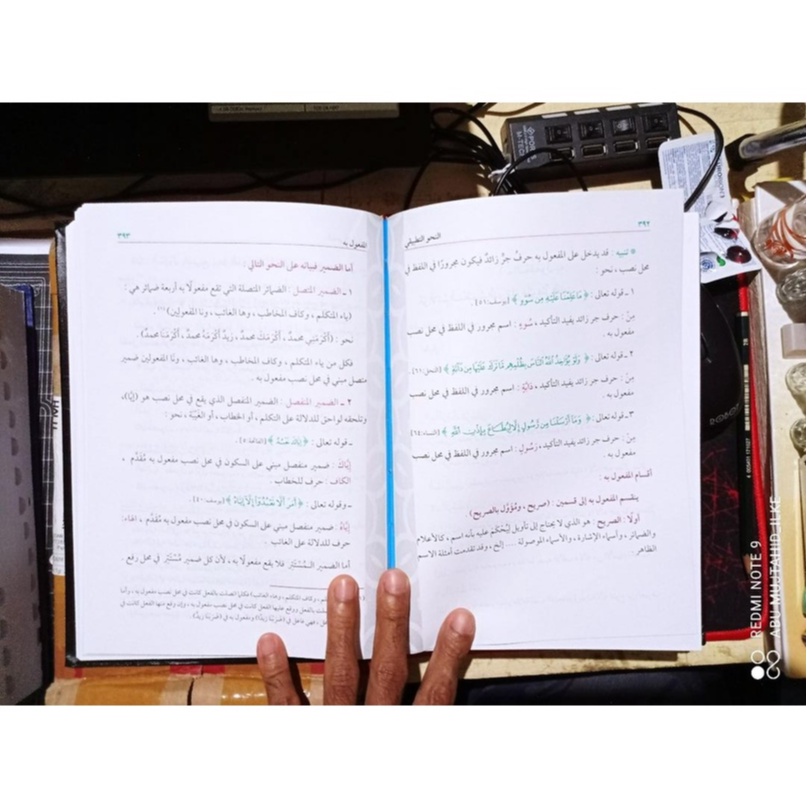 ٣٩٢
النحو التطبيقي
* تنبيه : قد يدخل على المفعول به حرفُ جرٍّ زائدٌ فيكون مجرورًا في اللفظ في
محل نصب ، نحو :
١ ـ قوله تعالى : ﴿ مَا عَلِمْنَا عَلَيْهِ مِن سُوٓءٍ ﴾ [يوسف: ٥١] .
مِنْ : حرف جر زائد يفيد التأكيد ، سُوءٍ : اسم مجرور في اللفظ في محل نصب
مفعول به .
٢ ـ قوله تعالى : ﴿ وَلَوْ يُؤَاخِذُ ٱللَّهُ ٱلنَّاسَ بِظُلْمِهِم مَّا تَرَكَ عَلَيْهَا مِن دَآبَّةٍ ﴾ [النحل: ٦١]
مِنْ : حرف جر زائد يفيد التأكيد ، دَابَّةٍ : اسم مجرور في اللفظ في محل نصب
مفعول به .
٣ ـ قوله تعالى : ﴿ وَمَآ أَرْسَلْنَا مِن رَّسُولٍ إِلَّا لِيُطَاعَ بِإِذْنِ ٱللَّهِ ﴾ [النساء: ٦٤]
مِنْ : حرف جر زائد يفيد التأكيد ، رَسُولٍ : اسم مجرور في اللفظ في محل نصب
مفعول به .
أقسام المفعول به :
ينقسم المفعول به إلى قسمين : (صريح ، ومُؤوَّل بالصريح)
أولًا : الصريح : هو الذي لا يحتاج إلى تأويل ليُحْكَم عليه بأنه اسم ، كالأعلام
والضمائر ، وأسماء الإشارة ، والأسماء الموصولة .... إلخ ، وقد تقدمت أمثلة الاسم
الظاهر .
المفعول به
٣٩٣
أما الضمير فبيانه على النحو التالي
١ ـ الضمير المتصل : الضمائر المتصلة التي تقع مفعولًا به أربعة ضمائر هي :
(ياء المتكلم ، وكاف المخاطب ، وها الغائب ، ونا المفعولين)
نحو : (أَكْرَمَنِي محمدٌ ، أَكْرَمَكَ محمدٌ ، زيدٌ أَكْرَمَهُ محمدٌ ، أَكْرَمَنَا محمدٌ) .
فكل من ياء المتكلم ، وكاف المخاطب ، وها الغائب ، ونا المفعولين ضمير
متصل مبني في محل نصب مفعول به .
٢ ـ الضمير المنفصل : الضمير المنفصل الذي يقع في محل نصب هو (إيَّا) ،
وتلحقه لواحق للدلالة على التكلم ، أو الخطاب ، أو الغَيْبَة ، نحو :
ـ قوله تعالى : ﴿ إِيَّاكَ نَعْبُدُ ﴾ [الفاتحة: ٥]
إِيَّاكَ : ضمير منفصل مبني على السكون في محل نصب مفعول به مُقدَّم ،
الكاف : حرف للخطاب .
ـ وقوله تعالى : ﴿ أَمَرَ أَلَّا تَعْبُدُوٓا۟ إِلَّآ إِيَّاهُ ﴾ [يوسف: ٤٠]
إِيَّاهُ : ضمير منفصل مبني على السكون في محل نصب مفعول به مُقدَّم ، الهاء :
حرف للدلالة على الغائب .
أما الضمير المُسْتَتِر فلا يقع مفعولًا به ، لأن كل ضمير مُسْتَتِر في محل رفع .
وكاف المتكلم ، وهاء الغائب) فكلما اتصلت بالفعل كانت في محل نصب مفعول به ، وأما
REDMI NOTE 9
ABU MUJTAHID ILKE